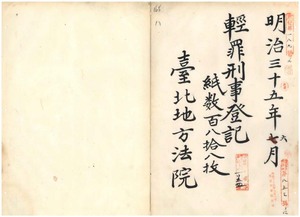 明治三十五年六七月
輕罪刑事登記
紙数百八拾八枚
臺北地方法院